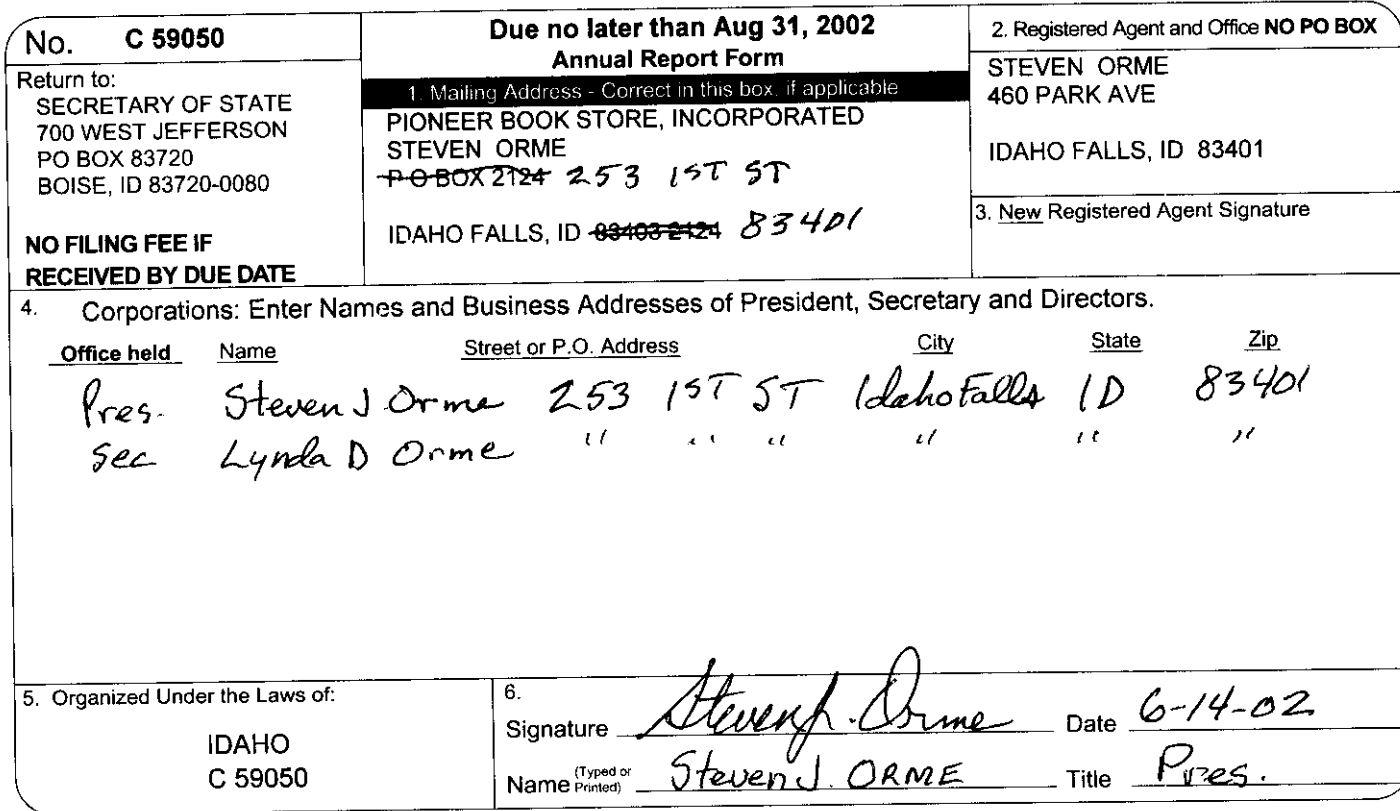 No. C 59050
Return to:
SECRETARY OF STATE
700 WEST JEFFERSON
PO BOX 83720
BOISE, ID 83720-0080
NO FILING FEE IF
RECEIVED BY DUE DATE
Due no later than Aug 31, 2002
Annual Report Form
1. Mailing Address - Correct in this box, if applicable
PIONEER BOOK STORE, INCORPORATED
STEVEN ORME
P O BOX 2124 253 1ST ST
IDAHO FALLS, ID 83403 2124 83401
2. Registered Agent and Office NO PO BOX
STEVEN ORME
460 PARK AVE
IDAHO FALLS, ID 83401
3. New Registered Agent Signature
4. Corporations: Enter Names and Business Addresses of President, Secretary and Directors.
Office held Name Street or P.O. Address City State Zip
Pres. Steven J Orme 253 1ST ST Idaho Falls ID 83401
Sec Lynda D Orme " " " " " "
5. Organized Under the Laws of:
IDAHO
C 59050
6.
Signature Steven J. Orme Date 6-14-02
Name (Typed or Printed) Steven J. ORME Title Pres.